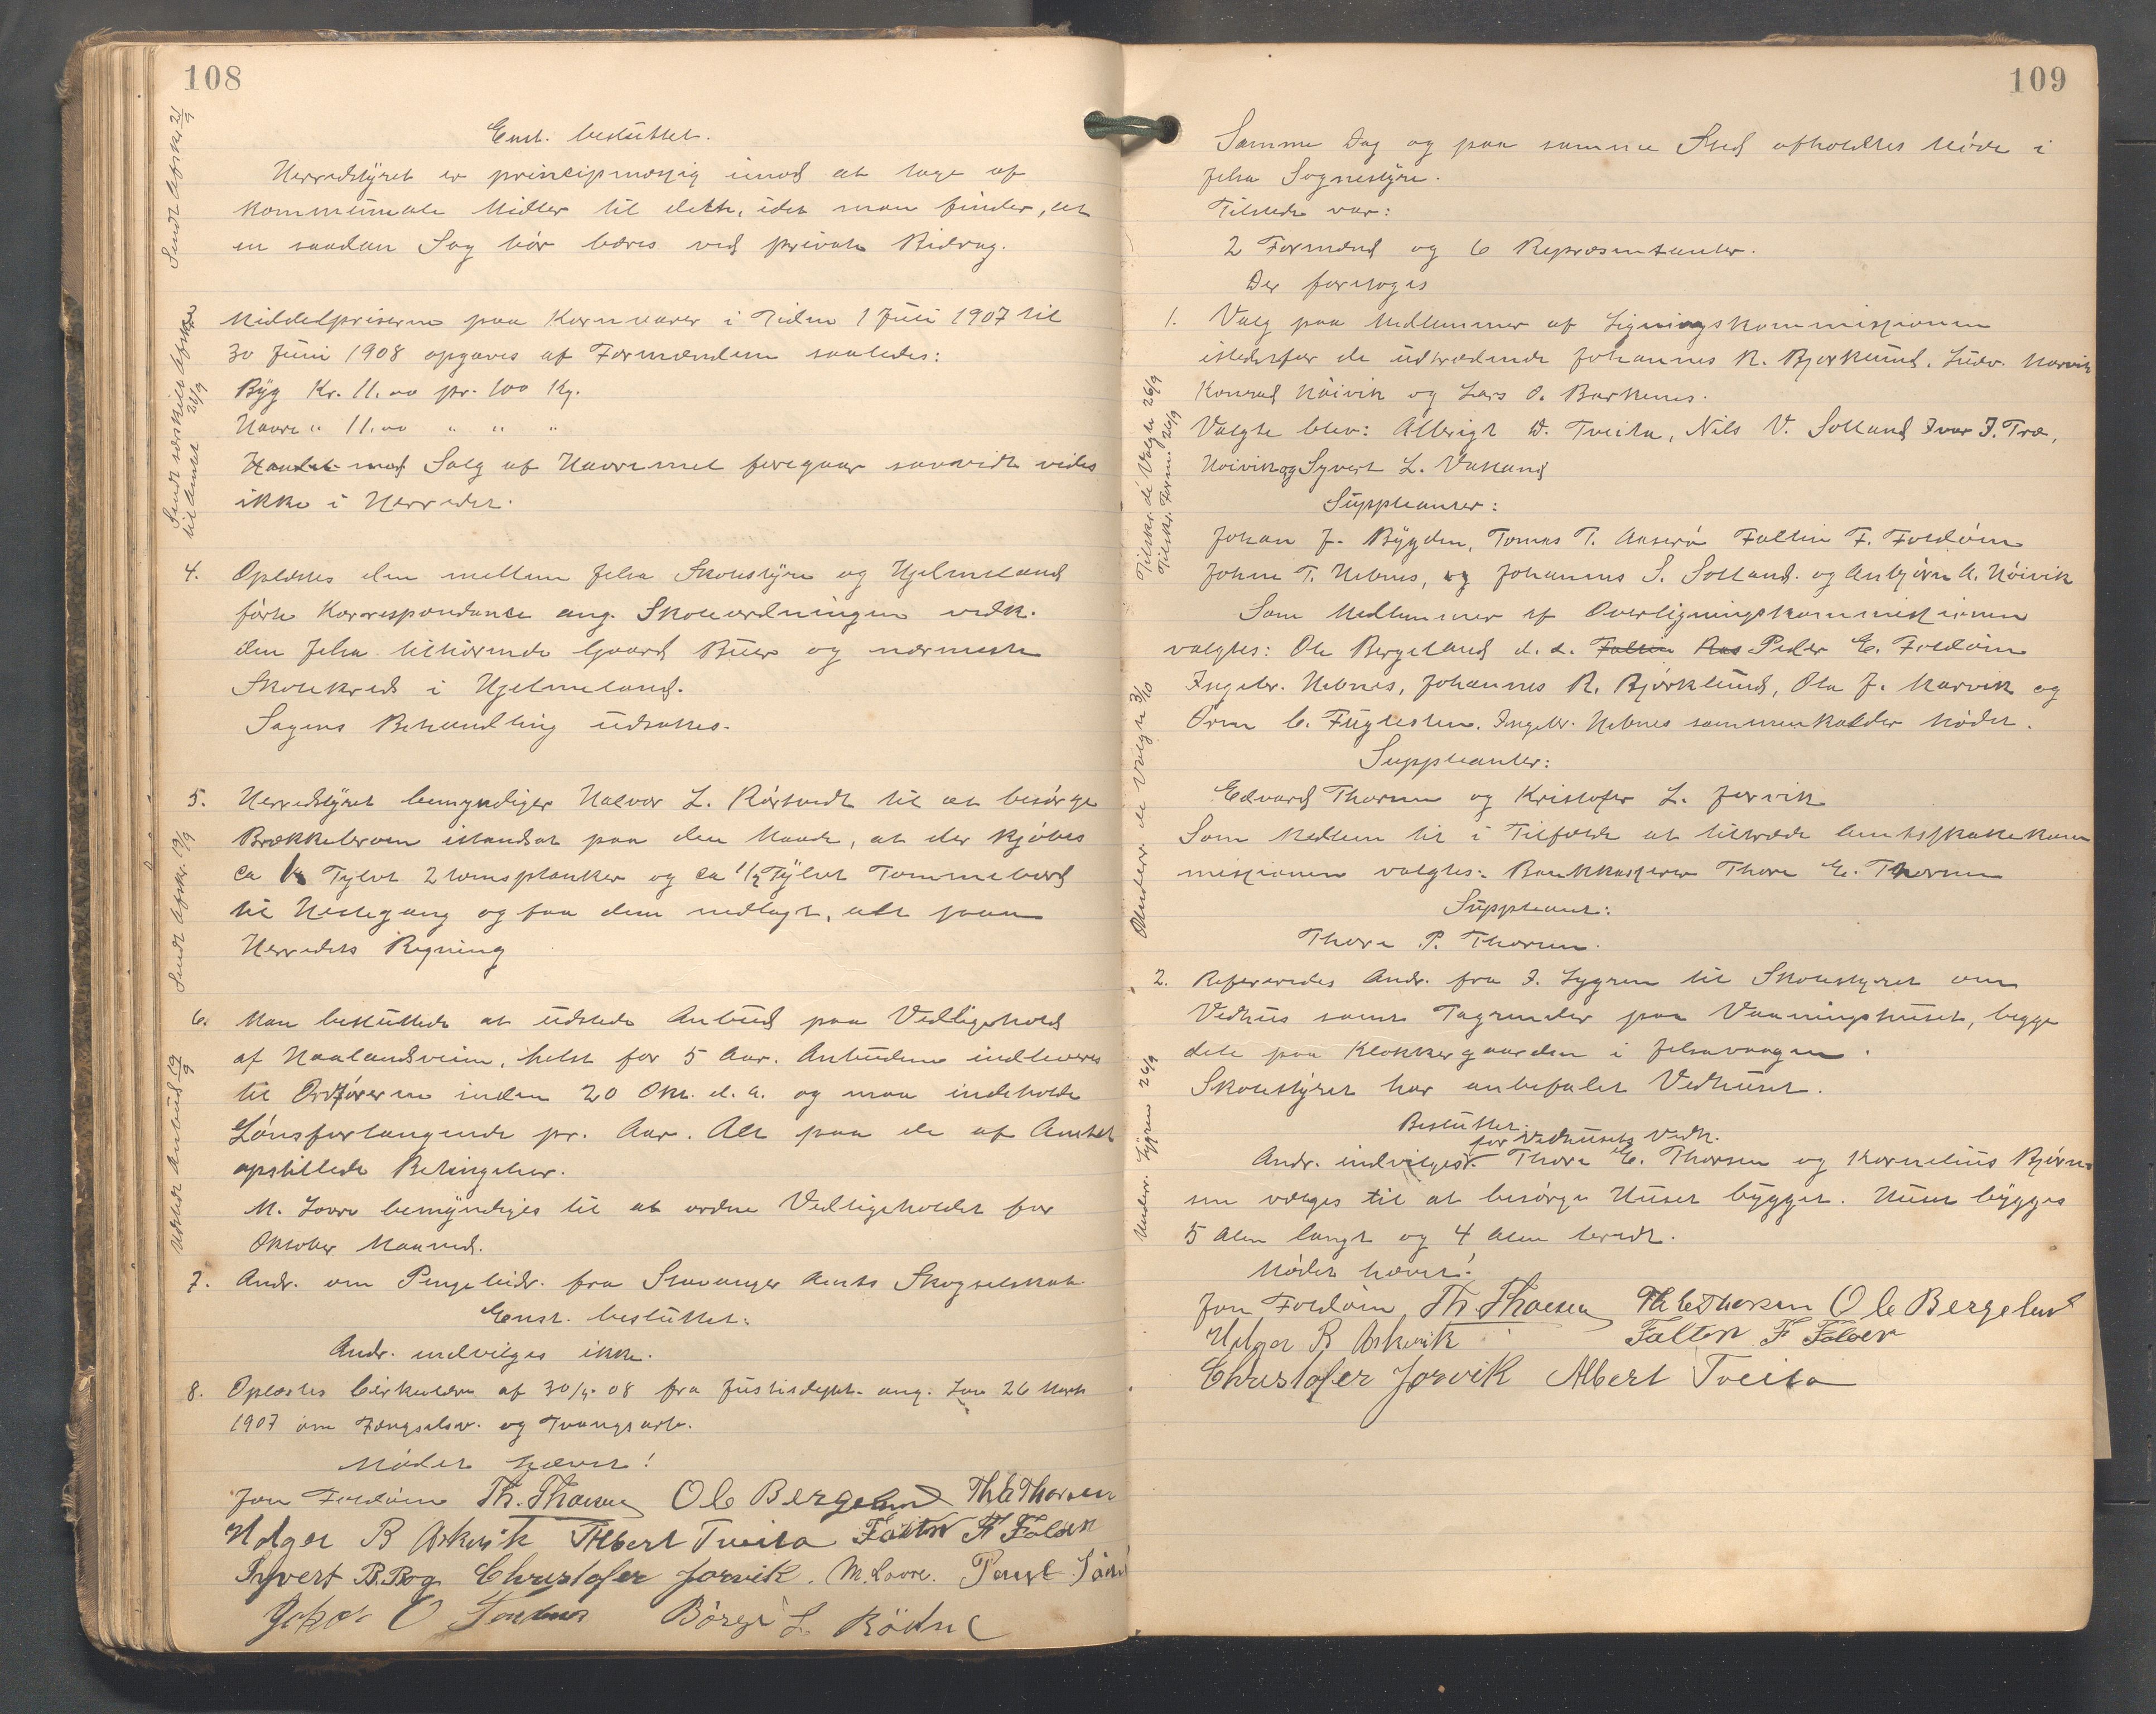 108
Sendt Afskr 21/9
Enst. besluttet.
Herredstyret er principmæssig imod at tage af
kommunale Midler til dette, idet man finder, at
en saadan Sag bør bæres ved private Bidrag.
Sendt særskilt Afskr.
til Amtet 26/9
Middelpriserne paa Kornvarer i Tiden 1 Juli 1907 til
30 Juni 1908 opgaves af Formændene saaledes:
Byg Kr. 11.00 pr. 100 Kg.
Havre " 11.00 " " "
Handel med Salg af Havremel foregaar saavidt vides
ikke i Herredet.
4. Oplæstes den mellem Jelsa Skolestyre og Hjelmeland
førte Korrespondance ang. Skoleordningen vedk.
den Jelsa tilhørende Gaard Buer og nærmeste
Skolekreds i Hjelmeland.
Sagens Behandling udsattes.
Sendt Afskr. 19/9
5. Herredstyret bemyndiger Halvor L. Rørtvedt til at besørge
Brækkebroen istandsat paa den Maade, at der kjøbes
ca ½ Tylvt 2 tomsplanker og ca 1/2 Tylvt Tommebord
til Hestegang og faa dem nedlagt, alt paa
Herredets Regning
Udstedt Anbud 19/9
6. Man besluttede at udstede Anbud paa Vedligehold
af Haalandsveien, helst for 5 Aar. Anbudene indleveres
til Ordføreren inden 20 Okt. d. a. og maa indeholde
Lønsforlangende pr. Aar. Alt paa de af Amtet
opstillede Betingelser.
M. Lovra bemyndiges til at ordne Vedligeholdet for
Oktober Maaned.
7. Andr. om Pengebidr. fra Stavanger Amts Skogselskab.
Enst. besluttet:
Andr. indvilges ikke.
8. Oplæstes Cirkulære af 30/4 08 fra Justisdept. ang. Lov 26 Marts
1907 om Fængselsv. og Tvangsarb.
Mødet hævet!
Jon Foldøen Th. Thorsen Ole Bergeland Th E Thorsen
Holger B Askvik Albert Tveita Faltin F Foldøen
Syvert B. Bog Christofer Jørvik. M. Lovra.
Børge L Rödne
109
Samme Dag og paa samme Sted afholdtes Møde i
Jelsa Sognestyre.
Tilstede var:
2 Formænd og 6 Repræsentanter.
Der foretoges
Tilskr. de Valgte 26/9
Tilskr. Form. 26/9
1. Valg paa Medlemmer af Ligningskommissionen
istedenfor de udtrædende Johannes R. Bjørklund, Ludv. Marvik
Konrad Nøivik og Lars O. Barkenes.
Valgte blev: Allerigt D. Tveita, Nils V. Solland Ivar I. Træ,
Nøivik og Syvert L. Vatland
Suppleanter:
Johan J. Bygden, Tomas T. Faltin F. Foldøen
Johan T. Hebnes, og Johannes S. Solland. og Anbjørn A. Nøivik
Underr. de Valgte 3/10
Som Medlemmer af Overligningskommissionen
valgtes: Ole Bergeland d. æ. Peder E. Foldøen
Ingebr. Hebnes, Johannes R. Bjørklund, Ola J. Marvik og
Orm C. Fuglesten. Ingebr. Hebnes sammenkalder Mødet.
Suppleanter:
Edvard Thorsen og Kristofer L. Jørvik
Som Medlem til i Tilfælde at tiltræde Amtsskattekom
missionen valgtes: Bankkasserer Thore E. Thorsen
Suppleant:
Thore P. Thorsen.
Underr. Lygren 26/9
2. Refereredes Andr. fra I. Lygren til Skolestyret om
Vedhus samt Tagrender paa Vaaningshuset, begge
dele paa Klokkergaarden i Jelsavaagen.
Skolestyret har anbefalet Vedhuset.
Besluttet:
for Vedhusets Vedk.
Andr. indvilges. Thore E. Thorsen og Kornelius Bjørn-
sen vælges til at besørge Huset bygget. Huset bygges
5 Alen langt og 4 Alen bredt.
Mødet hævet!
Jon Foldøen Th. Thorsen Th E Thorsen Ole Bergeland
Holger B Askvik Faltin F Foldøen
Christofer Jørvik Albert Tveita